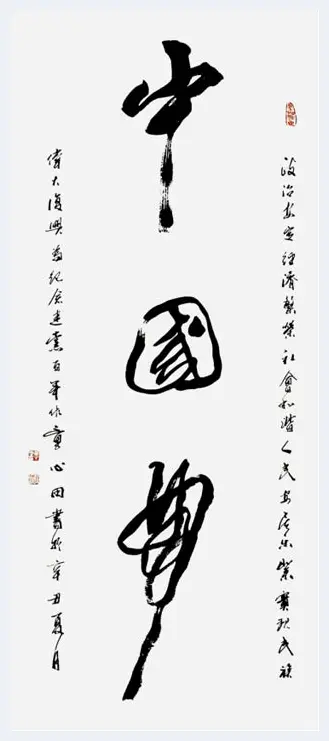 中國夢
政治安定经濟繁榮社會和諧人民安居乐業實现民族
偉大復興为紀念建黨百年作童心田書於辛丑夏月